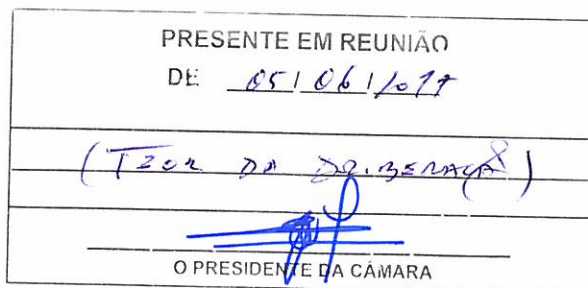 PRESENTE EM REUNIÃO
DE 05/06/2017
(TEOR DA DELIBERAÇÃO)
O PRESIDENTE DA CÂMARA